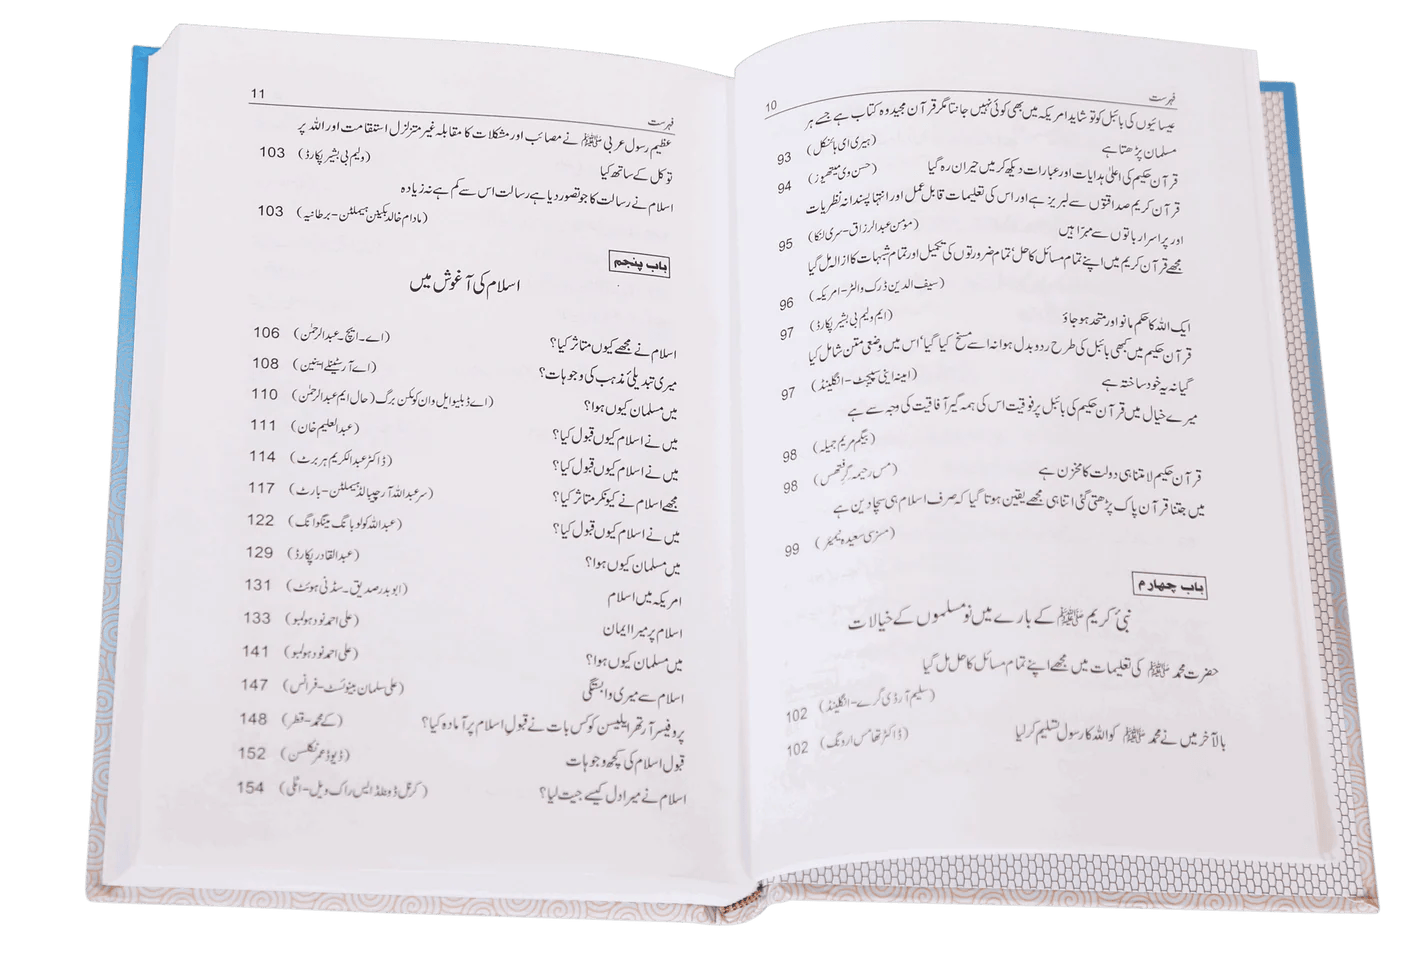 فہرست
10
عیسائیوں کی بائبل کو تو شاید امریکہ میں بھی کوئی نہیں جانتا مگر قرآن مجید وہ کتاب ہے جسے ہر
مسلمان پڑھتا ہے (ہیری ای ہائنکل) 93
قرآن حکیم کی اعلیٰ ہدایات اور عبارات دیکھ کر میں حیران رہ گیا (حسن وی میتھیوز) 94
قرآن کریم صداقتوں سے لبریز ہے اور اس کی تعلیمات قابل عمل اور انتہا پسندانہ نظریات
اور پراسرار باتوں سے مبرّا ہیں (مومن عبدالرزاق-سری لنکا) 95
مجھے قرآن کریم میں اپنے تمام مسائل کا حل، تمام ضرورتوں کی تکمیل اور تمام شبہات کا ازالہ مل گیا
(سیف الدین ڈرک والٹر-امریکہ) 96
ایک اللہ کا حکم مانو اور متحد ہو جاؤ (ایم ولیم بی بشیر پکارڈ) 97
قرآن حکیم میں کبھی بائبل کی طرح ردوبدل ہوا نہ اسے مسخ کیا گیا، اس میں وضعی متن شامل کیا
گیا نہ یہ خود ساختہ ہے (امینہ اینی سپیجٹ-انگلینڈ) 97
میرے خیال میں قرآن حکیم کی بائبل پر فوقیت اس کی ہمہ گیر آفاقیت کی وجہ سے ہے
(بیگم مریم جمیلہ) 98
قرآن حکیم لامتناہی دولت کا مخزن ہے (مس رحیمہ گرفتھس) 98
میں جتنا قرآن پاک پڑھتی گئی اتنا ہی مجھے یقین ہوتا گیا کہ صرف اسلام ہی سچا دین ہے
(مسز سی سعیدہ نیمیئر) 99
باب چہارم
نبیٔ کریم ﷺ کے بارے میں نو مسلموں کے خیالات
حضرت محمد ﷺ کی تعلیمات میں مجھے اپنے تمام مسائل کا حل مل گیا
(سلیم آر ڈی گرے-انگلینڈ) 102
بالآخر میں نے محمد ﷺ کو اللہ کا رسول تسلیم کر لیا (ڈاکٹر تھامس ارونگ) 102
فہرست
11
عظیم رسول عربی ﷺ نے مصائب اور مشکلات کا مقابلہ غیر متزلزل استقامت اور اللہ پر
توکل کے ساتھ کیا (ولیم بی بشیر پکارڈ) 103
اسلام نے رسالت کا جو تصور دیا ہے رسالت اس سے کم ہے نہ زیادہ
(مادام خالد بکینن ہیملٹن-برطانیہ) 103
باب پنجم
اسلام کی آغوش میں
اسلام نے مجھے کیوں متاثر کیا؟ (اے۔ ایچ۔ عبدالرحمٰن) 106
میری تبدیلیٔ مذہب کی وجوہات؟ (اے آر سٹینلے اینین) 108
میں مسلمان کیوں ہوا؟ (اے ڈبلیو ایل وان کوئکن برگ (حال ایم عبدالرحمٰن) 110
میں نے اسلام کیوں قبول کیا؟ (عبدالعلیم خان) 111
میں نے اسلام کیوں قبول کیا؟ (ڈاکٹر عبدالکریم ہربرٹ) 114
مجھے اسلام نے کیونکر متاثر کیا؟ (سر عبداللہ آرچیبالڈ ہیملٹن-بارٹ) 117
میں نے اسلام کیوں قبول کیا؟ (عبداللہ کولو بانگ مینگوانگ) 122
میں مسلمان کیوں ہوا؟ (عبدالقادر پکارڈ) 129
امریکہ میں اسلام (ابوبدر صدیق۔ سڈنی ہوئٹ) 131
اسلام پر میرا ایمان (علی احمد نود ہولمبو) 133
میں مسلمان کیوں ہوا؟ (علی احمد نود ہولمبو) 141
اسلام سے میری وابستگی (علی سلمان بینوئسٹ-فرانس) 147
پروفیسر آرتھر ایلیسن کو کس بات نے قبولِ اسلام پر آمادہ کیا؟ (کے محمد-قطر) 148
قبول اسلام کی کچھ وجوہات (ڈیوڈ عمر نکلسن) 152
اسلام نے میرا دل کیسے جیت لیا؟ (کرنل ڈونلڈ ایس راک ویل-اٹلی) 154